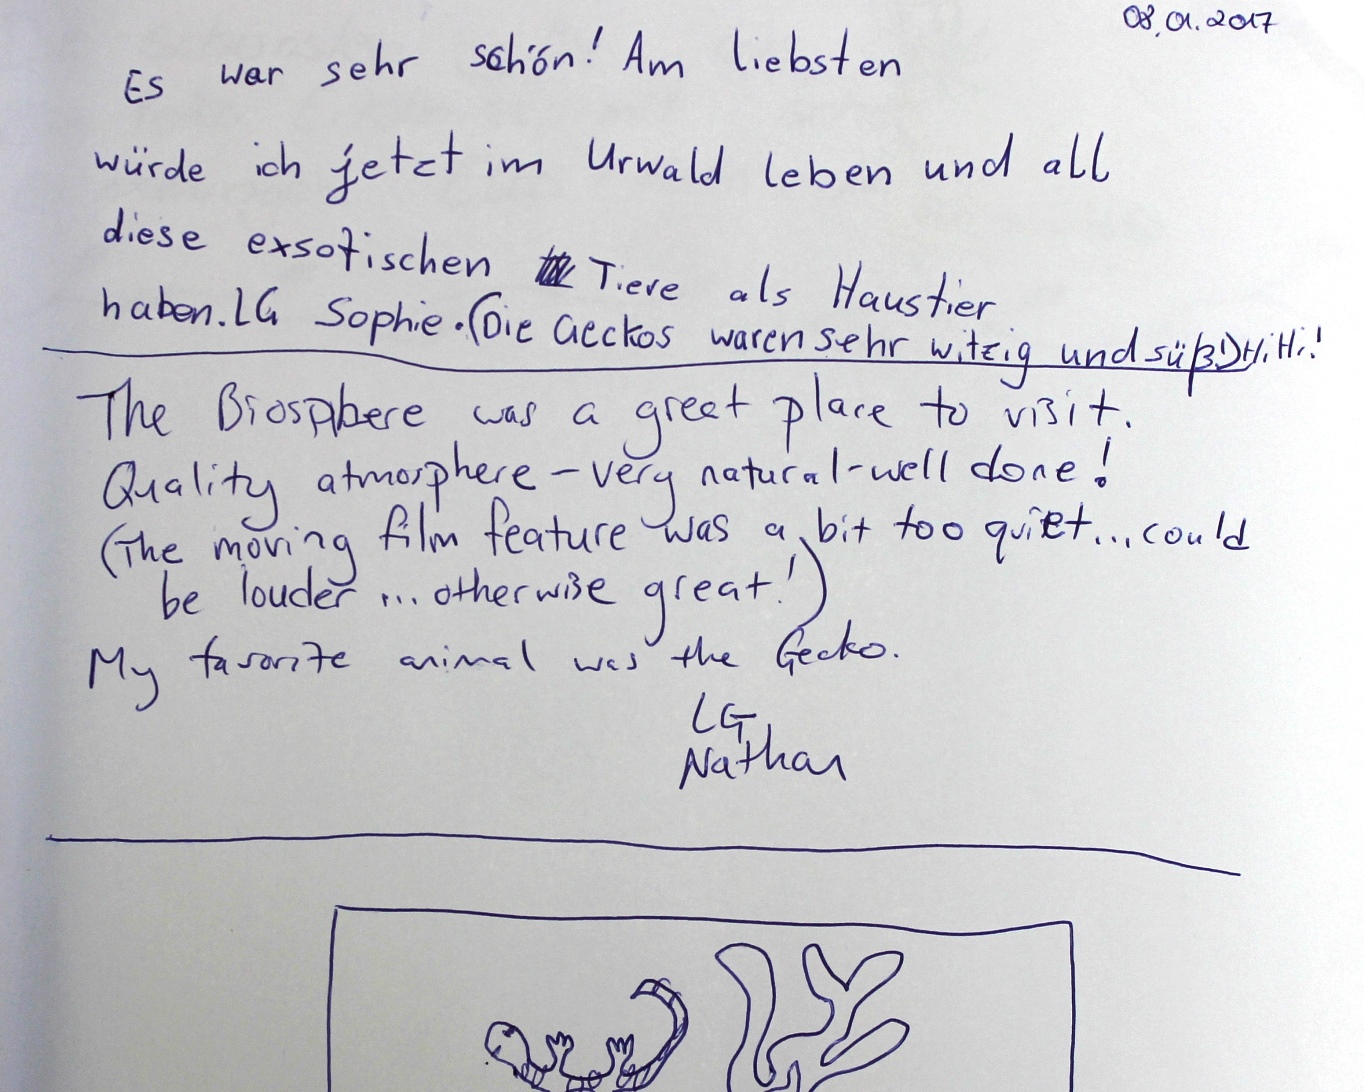 08.01.2017
Es war sehr schön! Am liebsten
würde ich jetzt im Urwald leben und all
diese exsotischen Tiere als Haustier
haben. LG Sophie. (Die Geckos waren sehr witzig und süß!) Hi Hi!
The Biosphere was a great place to visit.
Quality atmosphere – very natural – well done!
(The moving film feature was a bit too quiet... could
be louder ... otherwise great!)
My favorite animal was the Gecko.
LG
Nathan